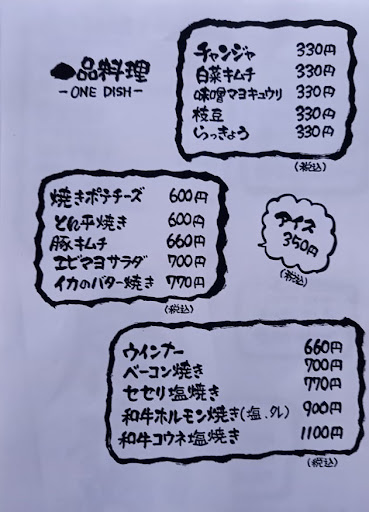 一品料理
-ONE DISH-
チャンジャ 330円
白菜キムチ 330円
味噌マヨキュウリ 330円
枝豆 330円
らっきょう 330円
(税込)
焼きポテチーズ 600円
とん平焼き 600円
豚キムチ 660円
エビマヨサラダ 700円
イカのバター焼き 770円
(税込)
アイス
350円
(税込)
ウインナー 660円
ベーコン焼き 700円
セセリ塩焼き 770円
和牛ホルモン焼き(塩、タレ) 900円
和牛コウネ塩焼き 1100円
(税込)